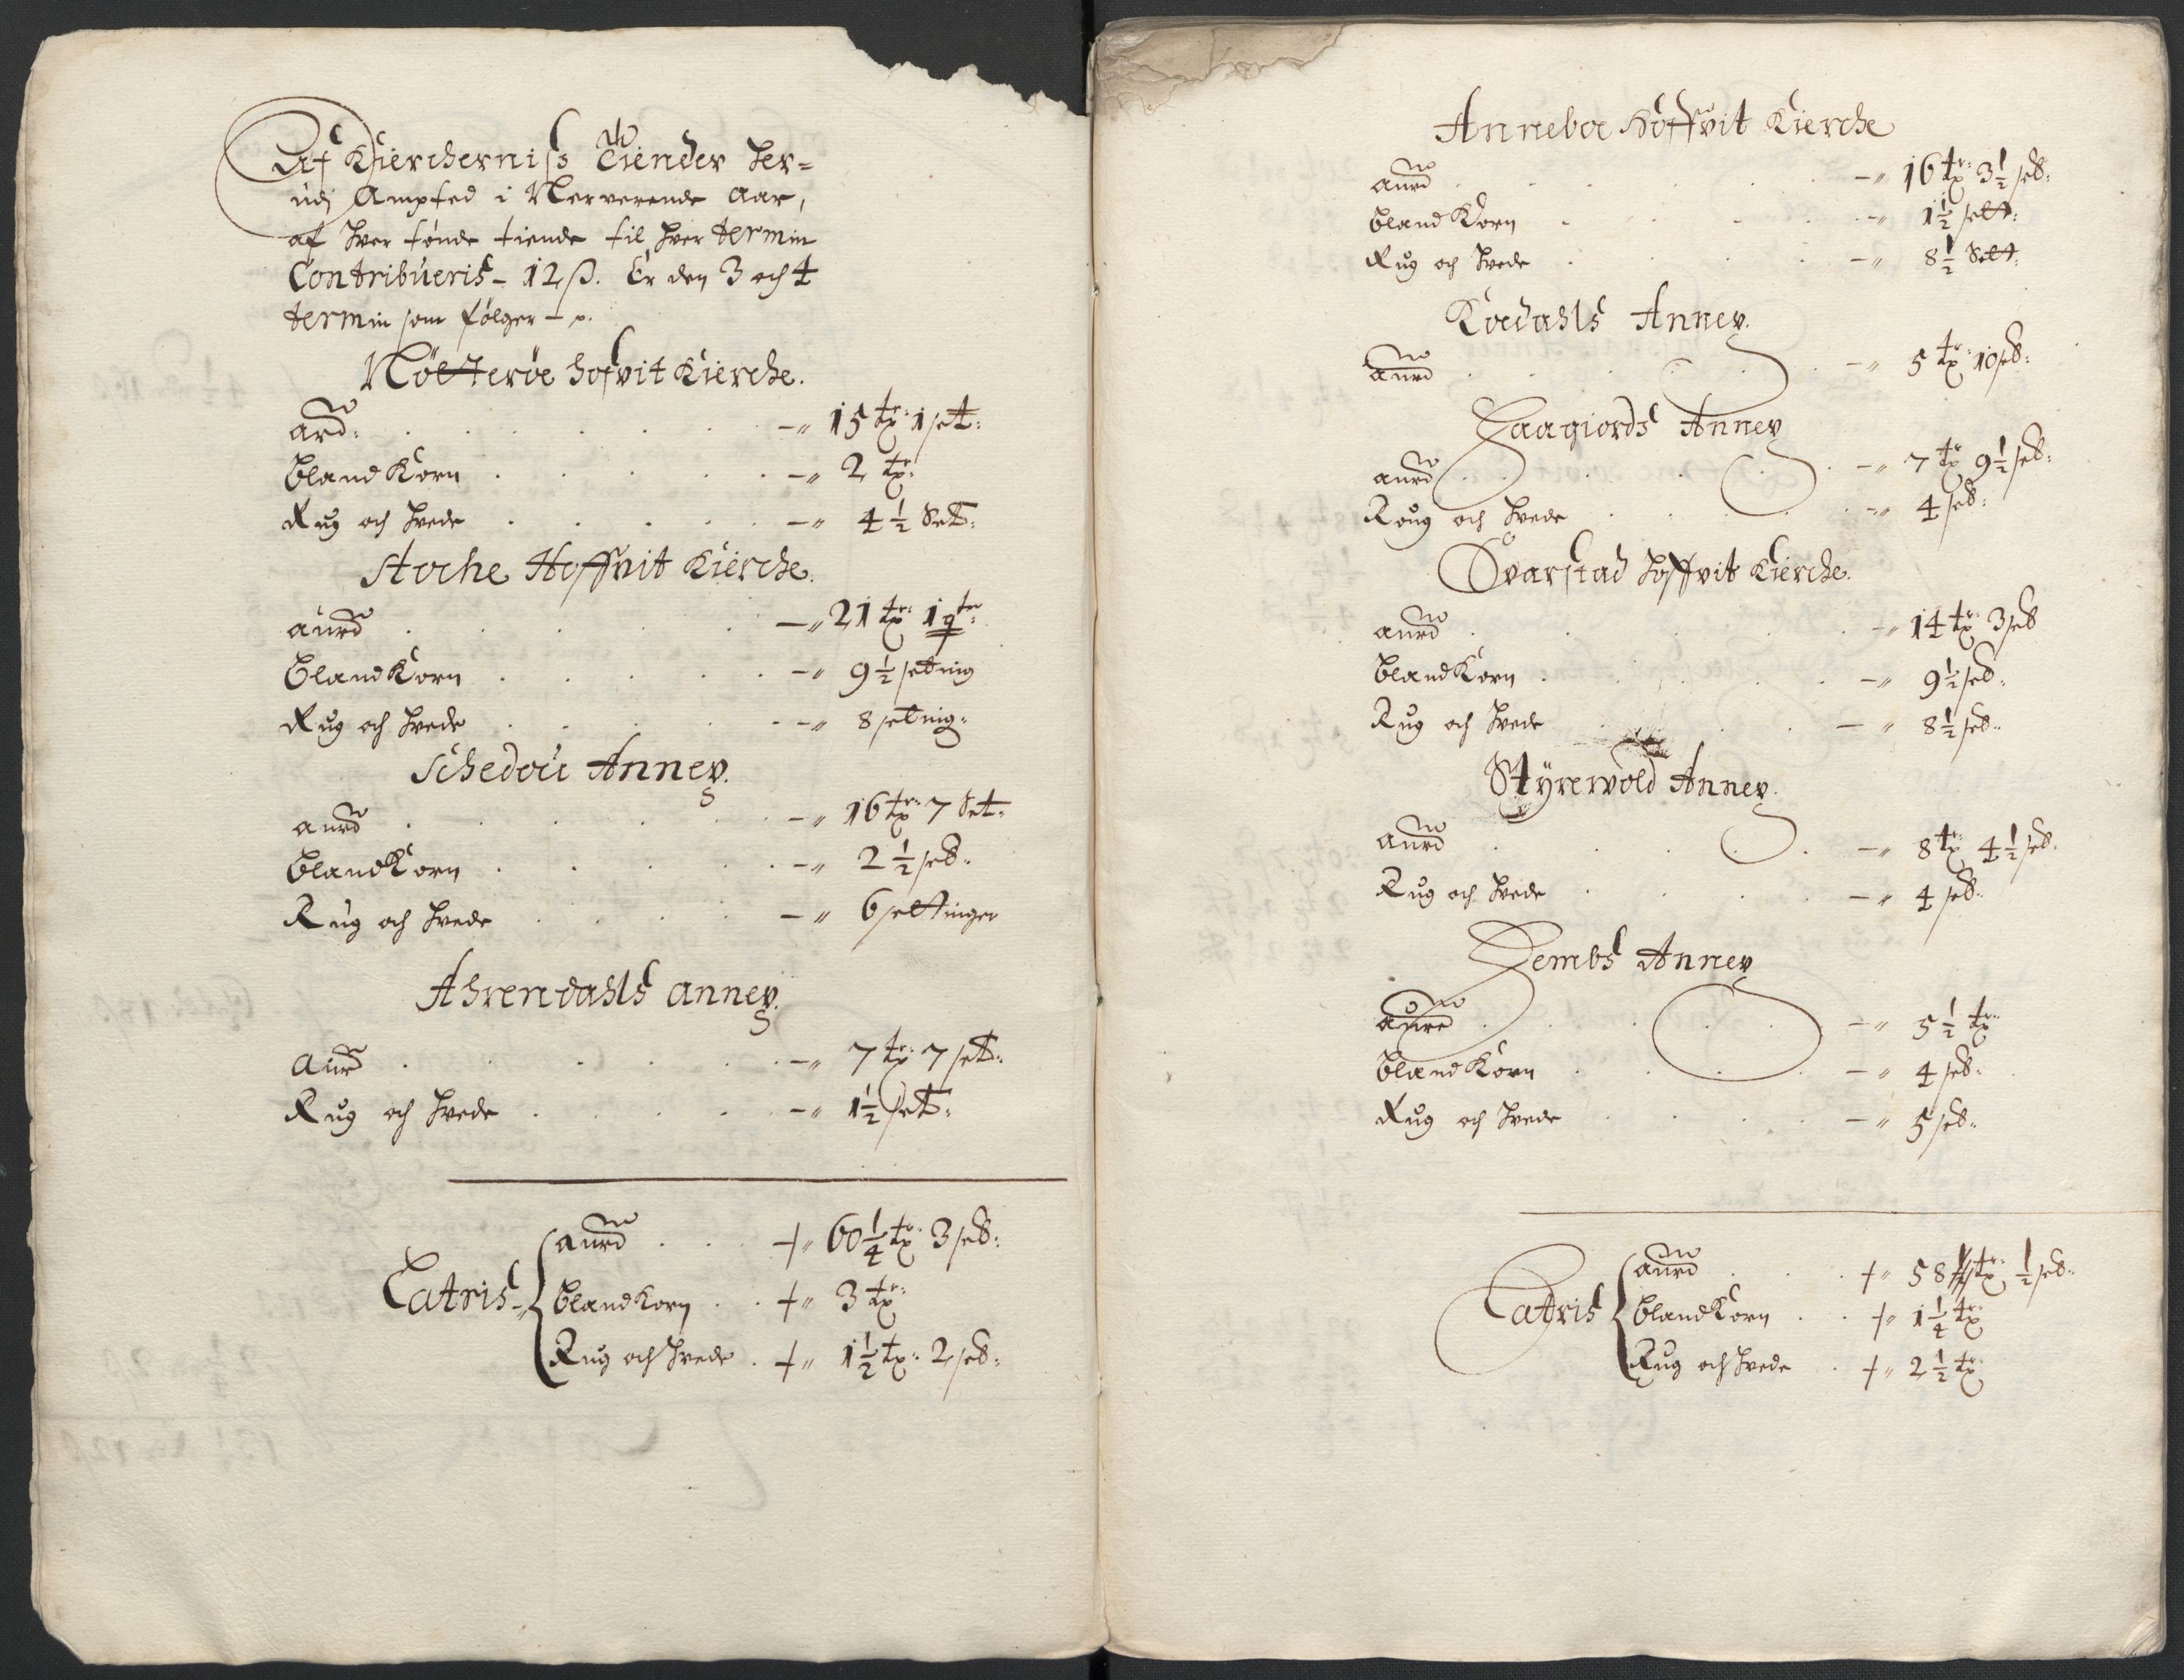 Af Kierchernis Tiender her=
udj Ampted i Nerverende Aar,
af hver tønde tiende til hver termin
Contribueris – 12 ß. Er den 3 och 4
termin som følger – p.
Nöetteröe hofvit Kierche.
aurd: . . . . . . –„ 15 tr: 1 set:
bland Korn . . . . –„ 2 tr:
Rug och hvede . . . . –„ 4 1/2 Set:
Stoche Hoffvit Kierche.
aurd . . . . . –„ 21 tr: 1 qtr:
bland Korn . . . . –„ 9 1/2 setning
Rug och hvede . . . . –„ 8 setning:
Schedou Annex.
aurd . . . . . –„ 16 tr: 7 Set:
bland Korn . . . . –„ 2 1/2 set:
Rug och hvede . . . . –„ 6 settinger
Ahrendahls annex.
Aurd . . . . . –„ 7 tr: 7 set:
Rug och hvede . . . . –„ 1 1/2 set:
Latris {
aurd . . . +„ 60 1/4 tr: 3 set:
bland korn . . +„ 3 tr:
Rug och hvede . +„ 1 1/2 tr: 2 set:
Anneboe Hoffvit Kierche
aurd . . . . . –„ 16 tr: 3 1/2 set:
bland Korn . . . . –„ 1 1/2 sett:
Rug och hvede . . . . –„ 8 1/2 Sett:
Kodahls Annex.
aurd . . . . . –„ 5 tr: 10 set:
Haagiords Annex
aurd . . . . . –„ 7 tr: 9 1/2 set:
Roug och hvede . . . . –„ 4 set:
Svarstad hoffvit Kierche.
aurd . . . . . –„ 14 tr: 3 set
bland Korn . . . . –„ 9 1/2 set:
Rug och hvede . . . . –„ 8 1/2 set:
Styrevold Annex.
aurd . . . . . –„ 8 tr: 4 1/2 set:
Rug och hvede . . . . –„ 4 set:
Hembs Annex
aurd . . . . . –„ 5 1/2 tr:
bland Korn . . . . –„ 4 set:
Rug och hvede . . . . –„ 5 set:
Latris {
aurd . . . +„ 58 tr: 1/2 set:
bland Korn . . +„ 1 1/4 tr:
Rug och hvede . +„ 2 1/2 tr: